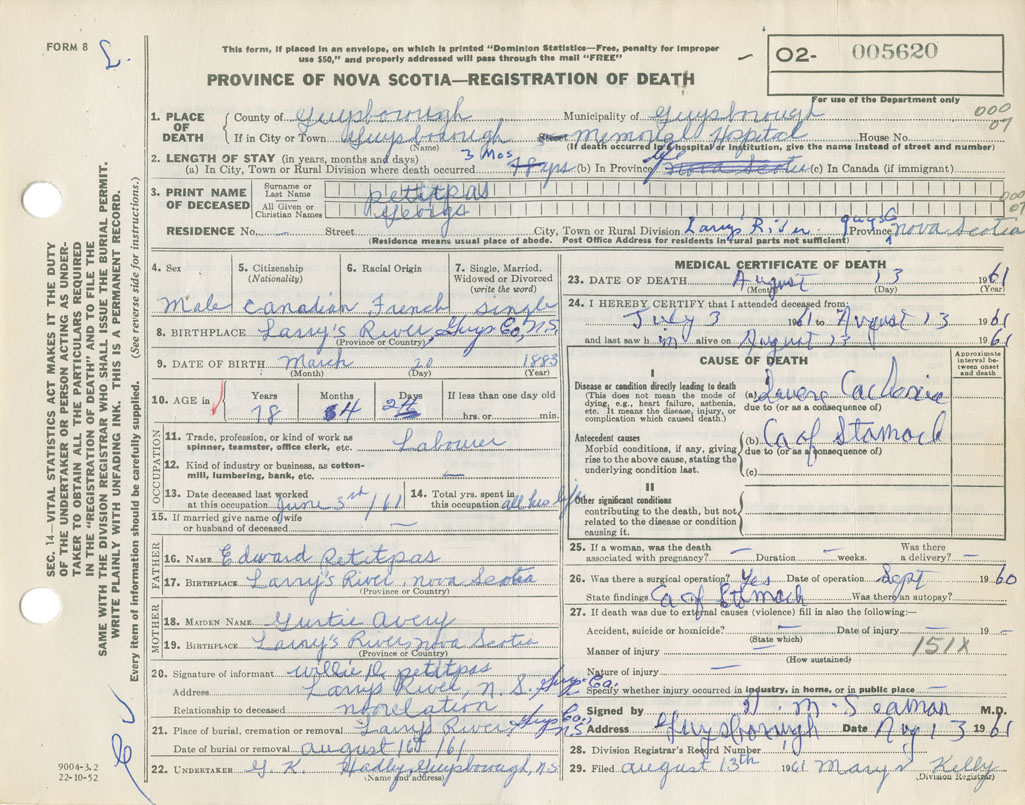 FORM 8
This form, if placed in an envelope, on which is printed "Dominion Statistics—Free, penalty for improper
use $50," and properly addressed will pass through the mail "FREE"
PROVINCE OF NOVA SCOTIA—REGISTRATION OF DEATH
02- 005620
For use of the Department only
000
07
1. PLACE OF DEATH { County of Guysborough Municipality of Guysborough
If in City or Town Guysborough (Name) Street Memorial Hospital House No.
(If death occurred in a hospital or institution, give the name instead of street and number)
2. LENGTH OF STAY (in years, months and days)
(a) In City, Town or Rural Division where death occurred 3 Mos (b) In Province life Nova Scotia (c) In Canada (if immigrant)
3. PRINT NAME OF DECEASED { Surname or Last Name Petitpas
All Given or Christian Names George
000
07
RESIDENCE No. — Street City, Town or Rural Division Larrys River Guys Co Province Nova Scotia
(Residence means usual place of abode. Post Office Address for residents in rural parts not sufficient)
4. Sex 5. Citizenship (Nationality) 6. Racial Origin 7. Single, Married, Widowed or Divorced (write the word)
Male Canadian French single
8. BIRTHPLACE Larry's River, Guys Co, N.S.
(Province or Country)
9. DATE OF BIRTH March 20 1883
(Month) (Day) (Year)
10. AGE in { Years Months Days If less than one day old
78 4 hrs. or min.
OCCUPATION
11. Trade, profession, or kind of work as spinner, teamster, office clerk, etc. Labourer
12. Kind of industry or business, as cotton-mill, lumbering, bank, etc. —
13. Date deceased last worked at this occupation June 3rd /61 14. Total yrs. spent in this occupation all his life
15. If married give name of wife or husband of deceased —
FATHER
16. NAME Edward Petitpas
17. BIRTHPLACE Larry's River, Nova Scotia
(Province or Country)
MOTHER
18. MAIDEN NAME Gurtie Avery
19. BIRTHPLACE Larry's River, Nova Scotia
(Province or Country)
20. Signature of informant Willie D. Petitpas
Address Larrys River, N.S. Guys Co.
Relationship to deceased no relation
21. Place of burial, cremation or removal Larrys River, Guys Co, N.S.
Date of burial or removal august 16th /61
22. UNDERTAKER G. K. Hadley, Guysborough, N.S.
(Name and address)
MEDICAL CERTIFICATE OF DEATH
23. DATE OF DEATH August 13 1961
(Month) (Day) (Year)
24. I HEREBY CERTIFY that I attended deceased from:
July 3 1961 to August 13 1961
and last saw him alive on August 13 1961
CAUSE OF DEATH
Approximate interval between onset and death
I
Disease or condition directly leading to death
(This does not mean the mode of dying, e.g., heart failure, asthenia, etc. It means the disease, injury, or complication which caused death.)
(a) Severe Cachexia
due to (or as a consequence of)
Antecedent causes
Morbid conditions, if any, giving rise to the above cause, stating the underlying condition last.
(b) Ca of Stomach
due to (or as a consequence of)
(c)
II
Other significant conditions
contributing to the death, but not related to the disease or condition causing it.
25. If a woman, was the death associated with pregnancy? — Duration — weeks. Was there a delivery? —
26. Was there a surgical operation? Yes Date of operation Sept 1960
State findings Ca of Stomach Was there an autopsy?
27. If death was due to external causes (violence) fill in also the following:—
Accident, suicide or homicide? — Date of injury — 19 —
(State which)
Manner of injury — 151X
(How sustained)
Nature of injury —
Specify whether injury occurred in industry, in home, or in public place —
Signed by M. Seaman M.D.
Address Guysborough Date Aug 13 1961
28. Division Registrar's Record Number
29. Filed august 13th 1961 Mary Kelly
(Division Registrar)
SEC. 14—VITAL STATISTICS ACT MAKES IT THE DUTY
OF THE UNDERTAKER OR PERSON ACTING AS UNDER-
TAKER TO OBTAIN ALL THE PARTICULARS REQUIRED
IN THE "REGISTRATION OF DEATH" AND TO FILE THE
SAME WITH THE DIVISION REGISTRAR WHO SHALL ISSUE THE BURIAL PERMIT.
WRITE PLAINLY WITH UNFADING INK. THIS IS A PERMANENT RECORD.
Every item of information should be carefully supplied. (See reverse side for instructions.)
9004-3.2
22-10-52